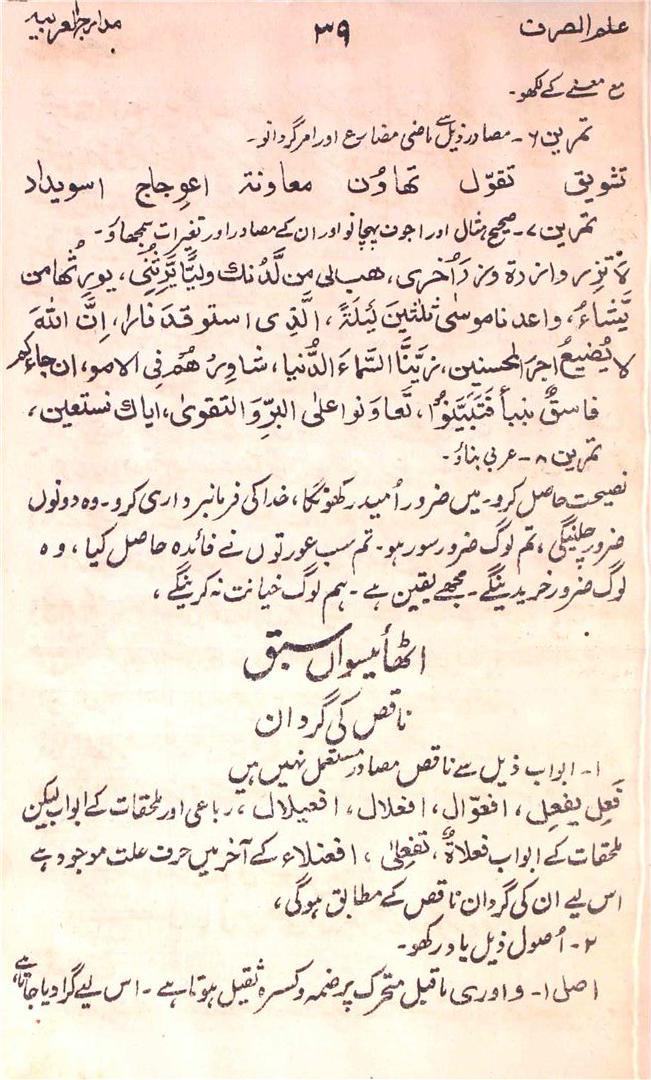 علم الصرف ۳۹ مدارج العربیہ
مع معنے کے لکھو۔
تمرین ۶۔ مصادر ذیل سے ماضی مضارع اور امر گردانو۔
تشویق تقوّل تھاوُن معاونۃ اعوِجاج اسویداد
تمرین ۷۔ صحیح، مثال اور اجوف پہچانو اور ان کے مصادر اور تغیرات سمجھاؤ۔
لا تزِر وازرۃ وزرَ اُخری، ھب لی من لَّدُنك ولیًّا یَّرِثُنِی، یورِثُھا من
یَّشاءُ، واعدنا موسٰی ثلٰثین لَیْلَۃً، الَّذِی استوقدَ نارا، اِنَّ اللّٰہَ
لا یُضیعُ اجرَ المحسنین، زیَّنَّا السَّماءَ الدُّنیا، شاوِرْ ھُمْ فِی الامو، ان جاءکم
فاسقٌ بنبأ فَتَبَیَّنُوْا، تَعاوَنوا علی البِرِّ وَالتقویٰ، ایاك نستعین،
تمرین ۸۔ عربی بناؤ۔
نصیحت حاصل کرو۔ میں ضرور اُمید رکھونگا، خدا کی فرمانبرداری کرو۔ وہ دونوں
ضرور چلینگی، تم لوگ ضرور سورہو۔ تم سب عورتوں نے فائدہ حاصل کیا، وہ
لوگ ضرور خریدینگے۔ مجھے یقین ہے۔ ہم لوگ خیانت نہ کرینگے،
اٹھائیسواں سبق
ناقص کی گردان
۱۔ ابواب ذیل سے ناقص مصادر مستعمل نہیں ہیں
فَعِل یفعِل، افعوّال، افعلال، افعیلال، رباعی اور ملحقات کے ابواب لیکن
ملحقات کے ابواب فعلاۃٌ، تفعلیٰ، افعنلاء کے آخر میں حرف علت موجود ہے
اس لیے ان کی گردان ناقص کے مطابق ہوگی،
۲۔ اُصول ذیل یاد رکھو۔
اصل ۱۔ و اور ی ماقبل متحرک پر ضمہ و کسرہ ثقیل ہوتا ہے۔ اس لیے گرا دیا جاتا ہے،